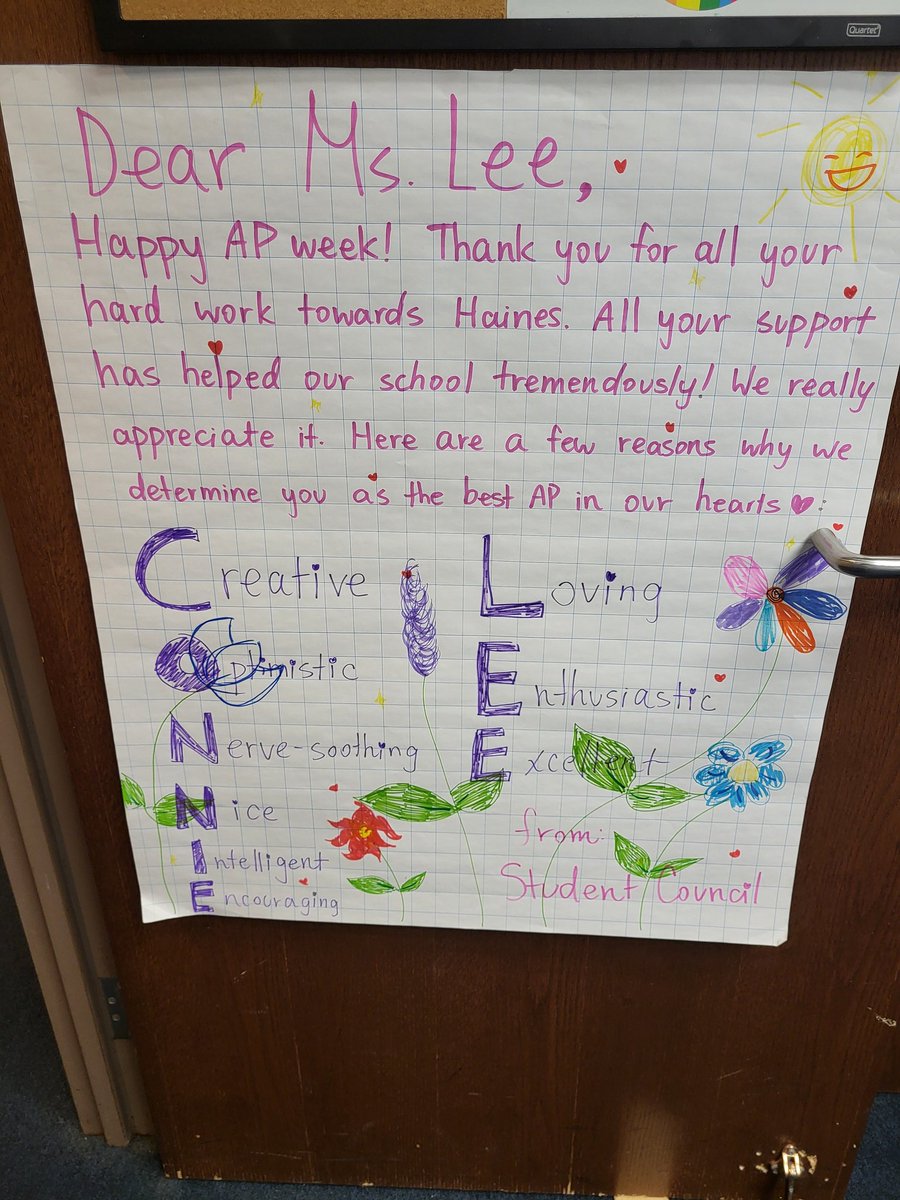 Quartet
Dear Ms. Lee,
Happy AP week! Thank you for all your
hard work towards Haines. All your support
has helped our school tremendously! We really
appreciate it. Here are a few reasons why we
determine you as the best AP in our hearts :
Creative
Optimistic
Nerve-soothing
Nice
Intelligent
Encouraging
Loving
Enthusiastic
Excellent
from:
Student Council